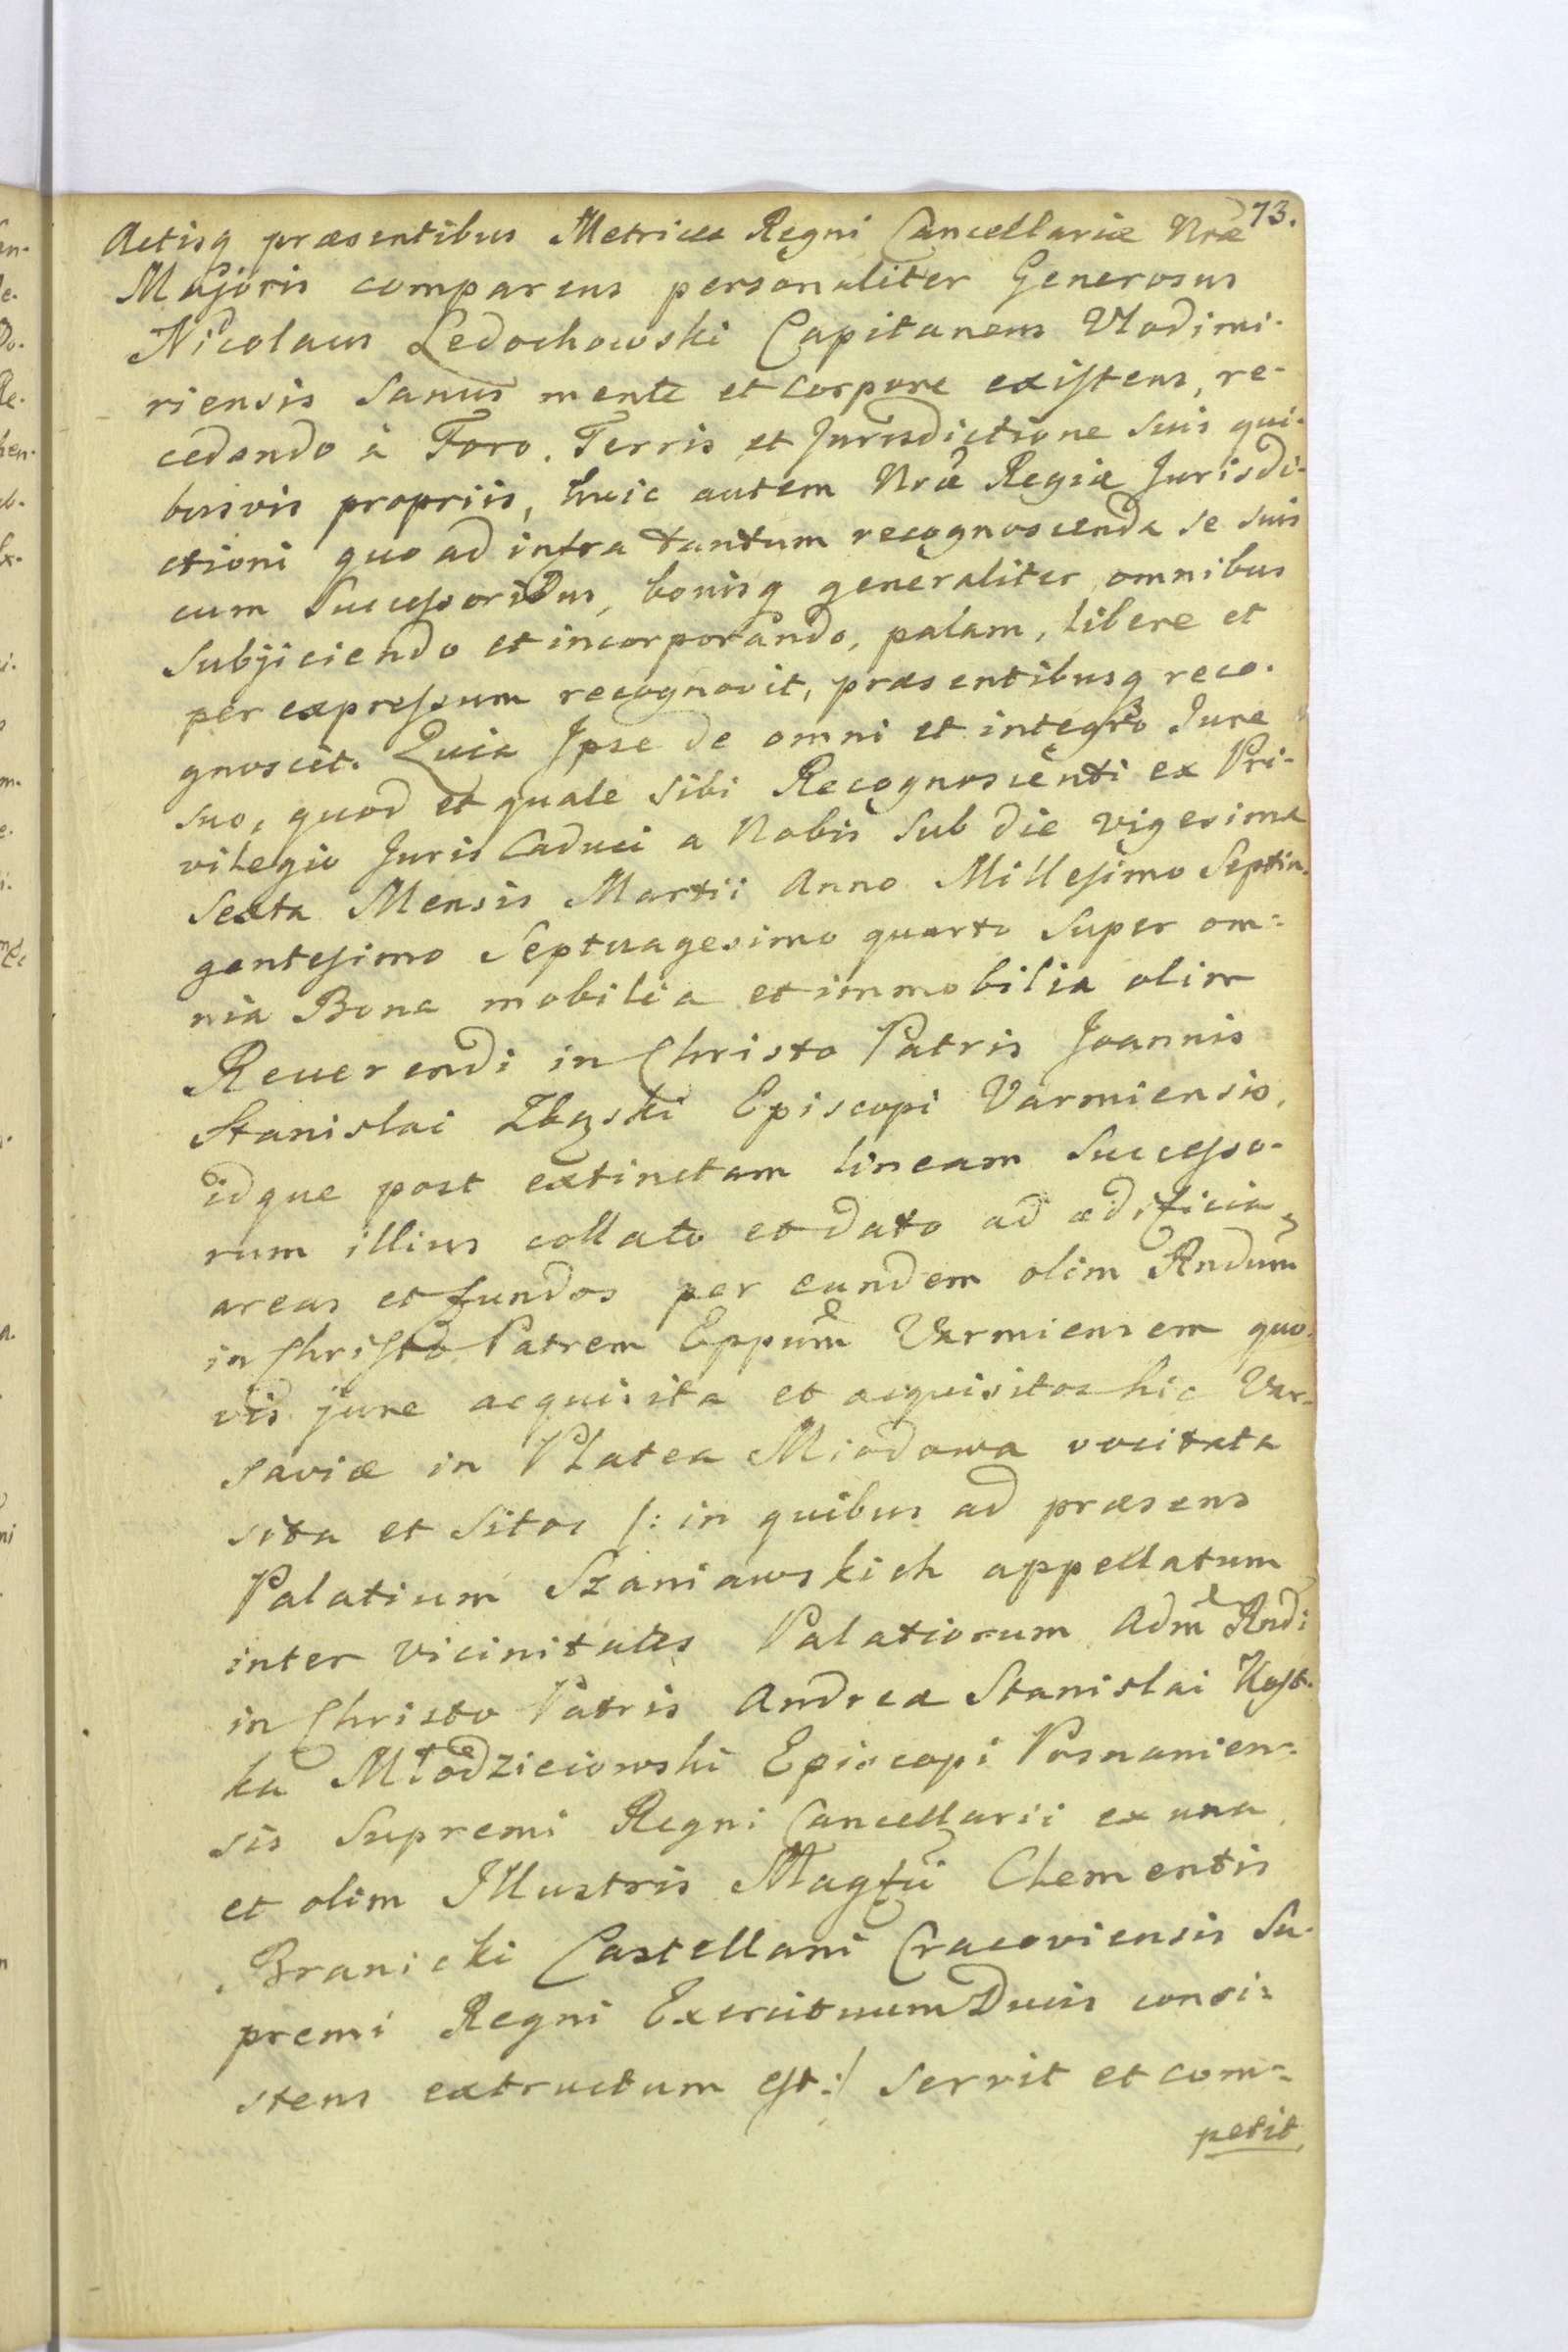 73.
Actisq præsentibus Metrices Regni Cancellariæ Nræ
Majoris comparens personaliter Generosus
Nicolaus Ledochowski Capitaneus Vlodimi-
riensis Sanus mente et corpore existens, re-
cedendo à Foro, Terris et Jurisdictione suis qui-
busvis propriis, huic autem Nræ Regiæ Jurisdi-
ctioni quo ad infra tantum recognoscenda se suis
cum Successoribus, bonisq generaliter omnibus
Subjiciendo et incorporando, palam, libere et
per expressum recognovit, præsentibusq reco-
gnoscit. Quia Ipse de omni et integro Jure
suo, quod et quale sibi Recognoscenti ex Pri-
vilegio Juris Caduci a Nobis sub die vigesima
Sexta Mensis Martii Anno Millesimo Septin-
gentesimo Septuagesimo quarto super om-
nia Bona mobilia et immobilia olim
Reverendi in Christo Patris Joannis
Stanislai Zbąski Episcopi Varmiensis,
idque post extinctam lineam Successo-
rum illius collato et dato ad ædificia,
areas et fundos per eundem olim Rndum
in Christo Patrem Eppum Varmiensem quo-
vis jure acquisita et acquisitos hic Var-
saviæ in Platea Miodowa vocitata
sita et sitos /: in quibus ad præsens
Palatium Szaniawskich appellatum
inter vicinitates Palatiorum Adm Rndi
in Christo Patris Andreæ Stanislai Kost-
ka Młodzieiowski Episcopi Posnanien-
sis Supremi Regni Cancellarii ex una
et olim Illustris Magfii Clementis
Branicki Castellani Cracoviensis Su-
premi Regni Exercituum Ducis consi-
stens extructum est :/ servit et com-
petit